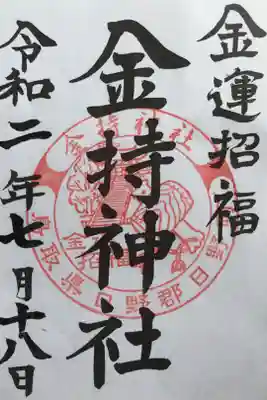 金運招福
金持神社
令和二年七月十八日
金持神社
鳥取県日野郡日